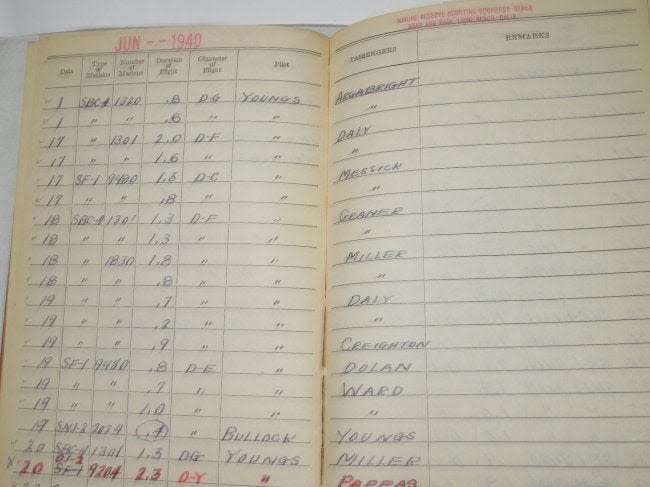 JUN -- 1940
MARINE RESERVE SCOUTING SQUADRON SEVEN
LONG BEACH, CALIF.
Date Type of Machine Number of Machine Duration of Flight Character of Flight Pilot PASSENGERS REMARKS
1 SBC-4 1320 .8 D-G YOUNGS ARGABRIGHT
1 " " .6 " " "
17 " 1301 2.0 D-F " DALY
17 " " 1.6 " " "
17 SF-1 9480 1.5 D-C " MESSICK
17 " " .8 " " "
18 SBC-4 1301 1.3 D-F " GRANER
18 " " 1.3 " " "
18 " 1830 1.8 " " MILLER
18 " " .8 " " "
19 " " .7 " " DALY
19 " " .2 " " "
19 " " .9 " " CREIGHTON
19 SF-1 9480 .8 D-E " DOLAN
19 " " .7 " " WARD
19 " " 1.0 " " "
19 SNJ-2 2029 .4 " BULLOCK YOUNGS
20 SBC-4 1301 1.3 D-G YOUNGS MILLER
OJ-2
20 SF-1 9204 2.3 D-Y " PAPPAS